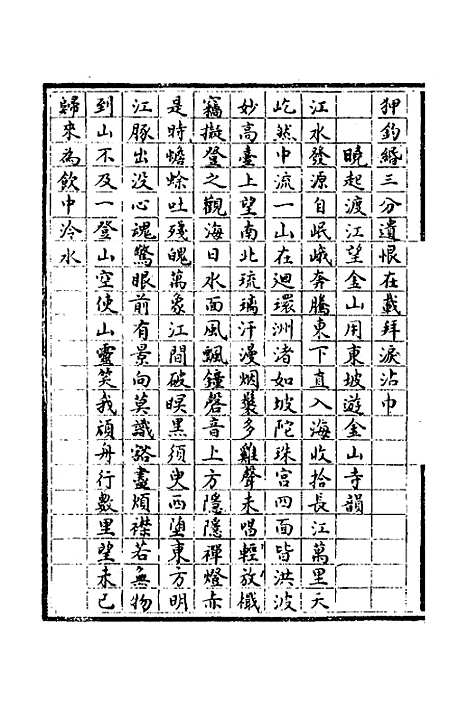 狎鈞緡三分遺恨在載拜淚沾巾
曉起渡江望金山用東坡遊金山寺韻
江水發源自岷峨奔騰東下直入海收拾長江萬里天
屹然中流一山在迴環洲渚如坡陀珠宮四面皆洪波
妙高臺上望南北琉璃汗漫烟鬟多雞聲未唱輕放檝
竊擬登之觀海日水面風飄鐘磬音上方隱隱禪燈赤
是時蟾蜍吐殘魄萬象江間破暝黑須臾西墮東方明
江豚出没心魂驚眼前有景向莫識豁盡煩襟若無物
到山不及一登山空使山靈笑我頑舟行數里望未已
歸來為飲中泠水